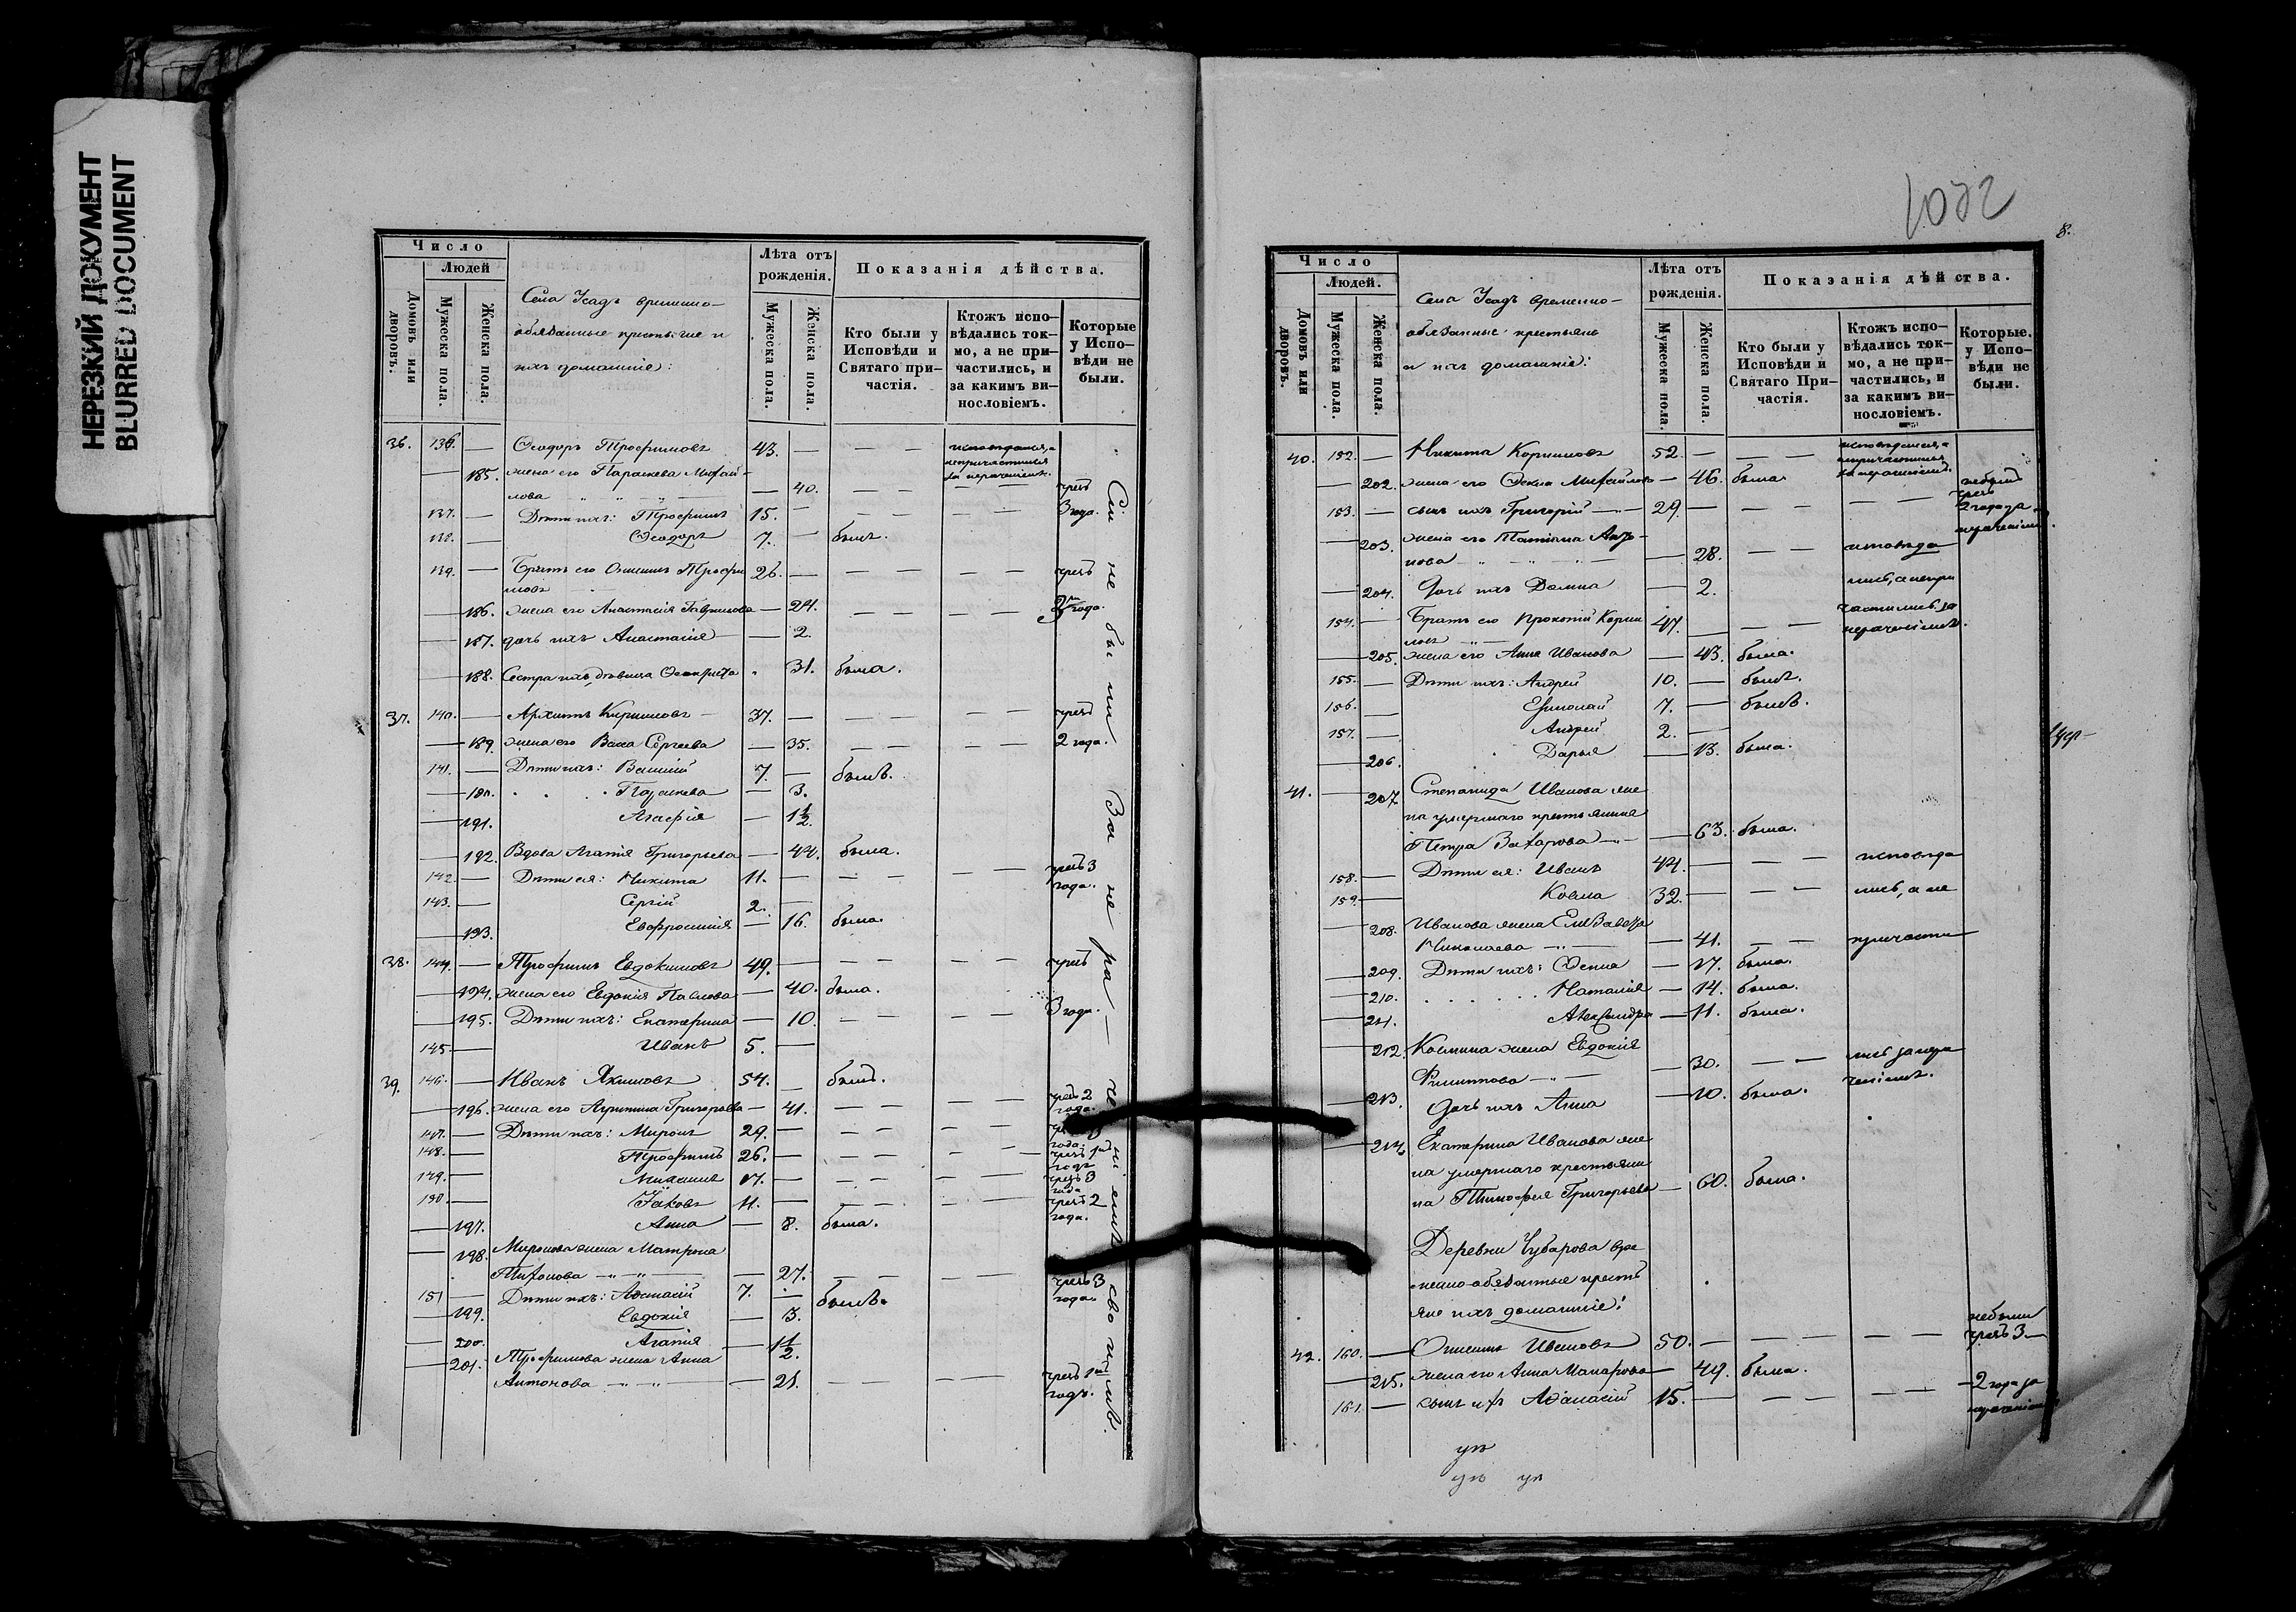 НЕРЕЗКИЙ ДОКУМЕНТ
BLURRED DOCUMENT
Число
Людей
Домовъ или дворовъ.
Мужеска пола.
Женска пола.
Села Усадъ временно-
обязанные крестьяне и
ихъ домашніе:
Лѣта отъ рожденія.
Мужеска пола.
Женска пола.
Показанія дѣйства.
Кто были у Исповѣди и Святаго причастія.
Ктожъ исповѣдались токмо, а не причастились, и за какимъ винословіемъ.
Которые у Исповѣди не были.
36. 136. — Ѳеодоръ Трофимовъ 43. — — — исповѣдался, а непричастился за нераченіемъ.
— 185. жена его Параскева Михай-
лова — 40. — — — — чрезъ
137. — Дѣти ихъ: Трофимъ 15. — — — — — 3 года.
138. — Ѳеодоръ 7. — былъ.
139. — Братъ его Онисимъ Трофи
мовъ 26. — — — — — чрезъ
— 186. жена его Анастасія Гаврилова — 24. — — — — года.
— 187. дочь ихъ Анастасія — 2.
— 188. Сестра ихъ, дѣвица 31. была.
37. 140. — Архипъ Кирилловъ 37. — — — — — чрезъ
— 189. жена его Васса Сергеева — 35. — — — — 2 года.
141. — Дѣти ихъ: Василій 7. — былъ.
— 190. Параскева — 3.
— 191. Агафія — 1 1/2.
— 192. Вдова Агапія Григорьева — 44. была.
142. — Дѣти ея: Никита 11. — — — — — чрезъ 3 года.
143. — Сергій 2. —
— 193. Евфросинія — 16. была.
38. 144. — Трофимъ Евдокимовъ 49. — — — — — чрезъ
— 194. жена его Евдокія Павлова — 40. была.
— 195. Дѣти ихъ: Екатерина — 10. — — — — 3 года.
145. — Иванъ 5. —
39. 146. — Иванъ Якимовъ 54. — былъ.
— 196. жена его Агрипина Григорьева — 41. — — — — чрезъ 2 года.
147. — Дѣти ихъ: Миронъ 29. — — — — — года.
148. — Трофимъ 26. — — — — — чрезъ 1 годъ
149. — Михаилъ 17. — — — — — чрезъ 3 года
150. — Іаковъ 11. — — — — — чрезъ 2 года.
— 197. Анна — 8. была.
— 198. Миронова жена Матрона
Тихонова — 27. — — — — чрезъ 3 года.
151 — Дѣти ихъ: Аѳанасій 7. — былъ.
— 199. Евдокія — 3.
— 200. Агапія — 1 1/2.
— 201. Трофимова жена Анна
Антонова — 21. — — — — чрезъ 1 годъ.
Сіи не были за нераченіемъ своимъ.
1072
8.
Число
Людей.
Домовъ или дворовъ.
Мужеска пола.
Женска пола.
Села Усадъ временно-
обязанные крестьяне
и ихъ домашніе:
Лѣта отъ рожденія.
Мужеска пола.
Женска пола.
Показанія дѣйства.
Кто были у Исповѣди и Святаго Причастія.
Ктожъ исповѣдались токмо, а не причастились, и за какимъ винословіемъ.
Которые. у Исповѣди не были.
40. 152. — Никита Корниловъ 52. — — — исповѣдался, а непричастился за нераченіемъ.
— 202. жена его Ѳекла Михайлова — 46. была.
153. — сынъ ихъ Григорій 29. — — — небылъ чрезъ 2 года за нераченіемъ.
— 203. жена его Татіана
нова — 28. — — исповѣда
— 204. Дочь ихъ Домна — 2. лись, а непри
154. — Братъ его Прокопій Корни
ловъ 47. — — — частились за нераченіемъ.
— 205. жена его Анна Иванова — 43. была.
155. — Дѣти ихъ: Андрей 10. — былъ.
156. — 7. — былъ.
157. — Андрей 2. —
— 206. Дарья — 13. была.
41. — 207. Степанида Иванова же
на умершаго крестьянина
Петра Захарова — 63. была.
158. — Дѣти ея: Иванъ 44. — — — исповѣда
159. — Козма 32. — — — лись, а не
— 208. Иванова жена Елизавета
Николаева — 41. — — причасти
— 209. Дѣти ихъ: Ѳекла — 17. была.
— 210. Наталія — 14. была.
— 211. Александра — 11. была.
— 212. Козмина жена Евдокія
Филиппова — 30. — — лись за нера
— 213. Дочь ихъ Анна — 10. была. ченіемъ.
— 214. Екатерина Иванова же
на умершаго крестьяни
на Тимофея Григорьева — 60. была.
Деревни Чубарова вре
менно-обязанные кресть
яне ихъ домашніе:
42. 160. — Онисимъ Ивановъ 50. — — — — — небыли чрезъ 3 —
— 215. жена его Анна Макарова — 49. была.
161. — сынъ ихъ Аѳанасій 15. — — — — — 2 года за нераченіемъ